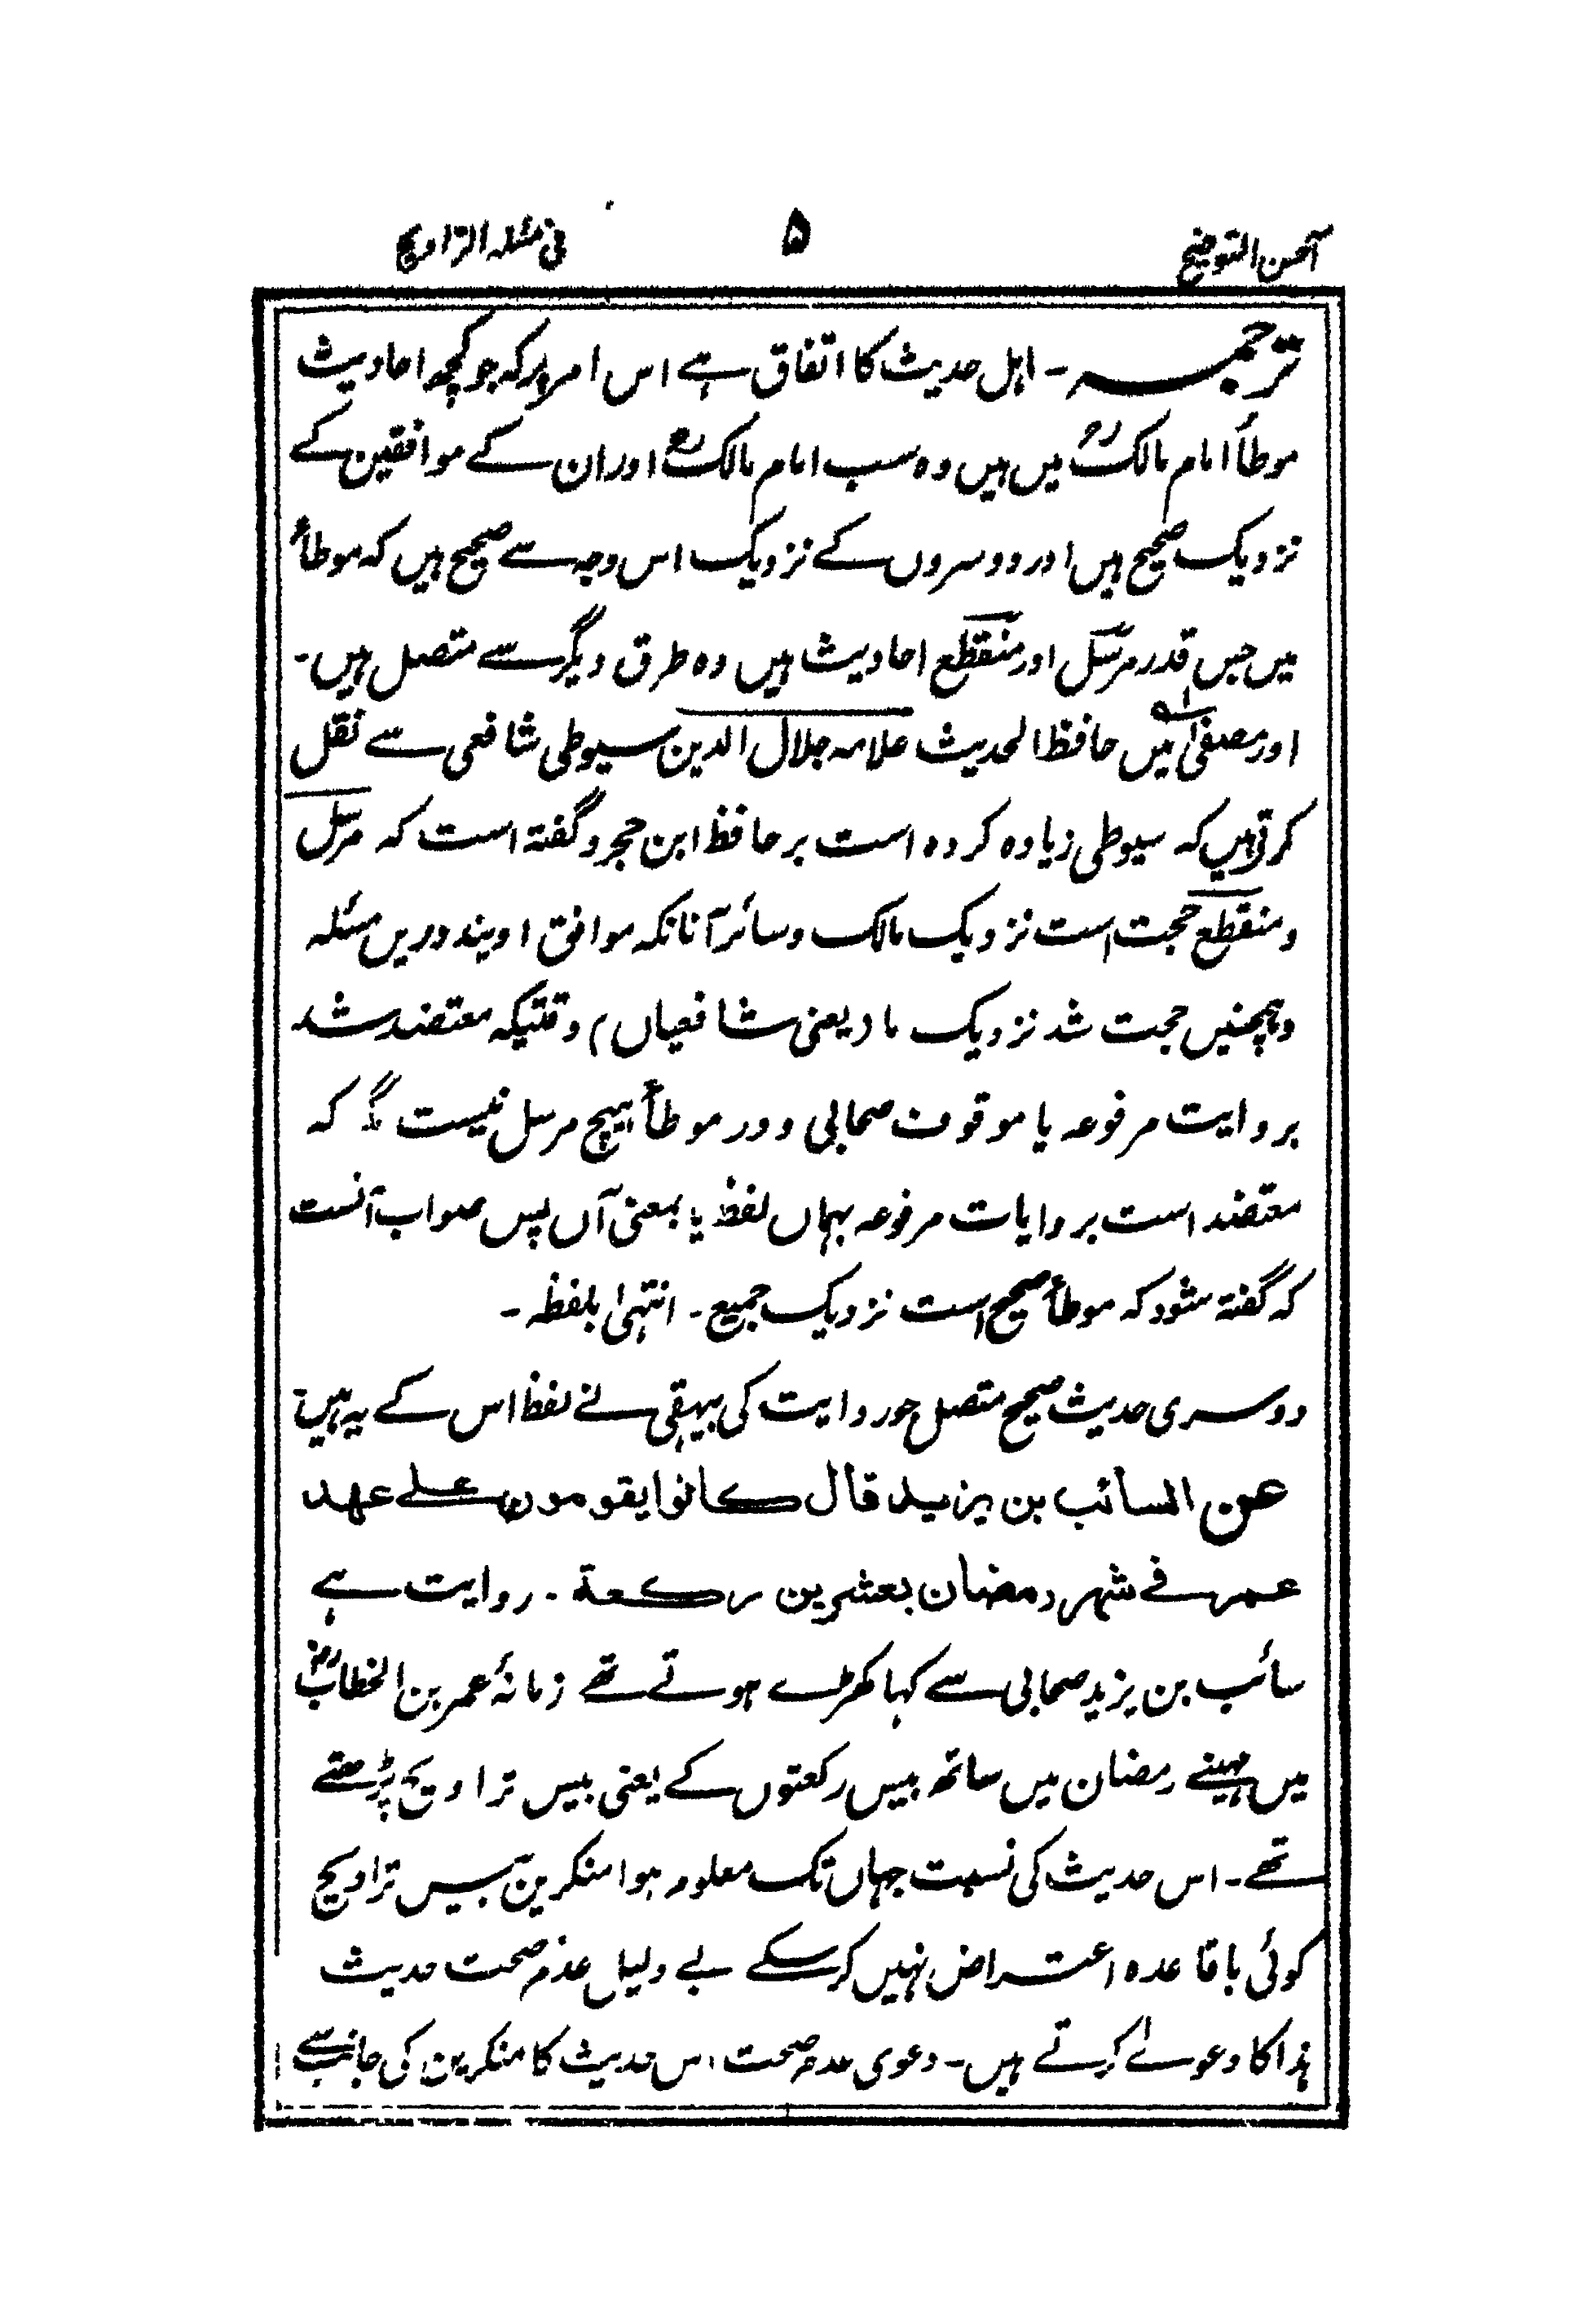 احسن التوضیح ۵ فی مسئلہ التراویح
ترجمہ ۔ اہل حدیث کا اتفاق ہے اس امر پر کہ جو کچھ احادیث
موطأ امام مالکؒ میں ہیں وہ سب امام مالکؒ اور ان کے موافقین کے
نزدیک صحیح ہیں اور دوسروں کے نزدیک اس وجہ سے صحیح ہیں کہ موطأ
میں جس قدر مرسل اور منقطع احادیث ہیں وہ طرق دیگر سے متصل ہیں۔
اور مصفیٰ میں حافظ الحدیث علامہ جلال الدین سیوطی شافعی سے نقل
کرتے ہیں کہ سیوطی زیادہ کردہ است بر حافظ ابن حجر و گفتہ است کہ مرسل
و منقطع حجت است نزدیک مالک و سائر آنانکہ موافق اویند دریں مسئلہ
و ہمچنیں حجت شد نزدیک ما (یعنی شافعیاں) وقتیکہ معتضد شد
بروایت مرفوعہ یا موقوف صحابی و در موطأ ہیچ مرسل نیست مگر کہ
معتضد است بروایات مرفوعہ بہماں لفظ یا بمعنی آں پس صواب آنست
کہ گفتہ شود کہ موطأ صحیح است نزدیک جمیع ۔ انتہیٰ بلفظہ ۔
دوسری حدیث صحیح متصل جو روایت کی بیہقی نے لفظ اس کے یہ ہیں
عن السائب بن یزید قال کانوا یقومون علے عهد
عمر فے شهر رمضان بعشرین رکعة ۔ روایت ہے
سائب بن یزید صحابی سے کہا کھڑے ہوتے تھے زمانۂ عمر بن الخطابؓ
میں مہینے رمضان میں ساتھ بیس رکعتوں کے یعنی بیس تراویح پڑھتے
تھے ۔ اس حدیث کی نسبت جہاں تک معلوم ہوا منکرین بیس تراویح
کوئی باقاعدہ اعتراض نہیں کرسکے بے دلیل عدم صحت حدیث
ہذا کا دعوے کرتے ہیں ۔ دعوی عدم صحت اس حدیث کا منکرین کی جانب سے